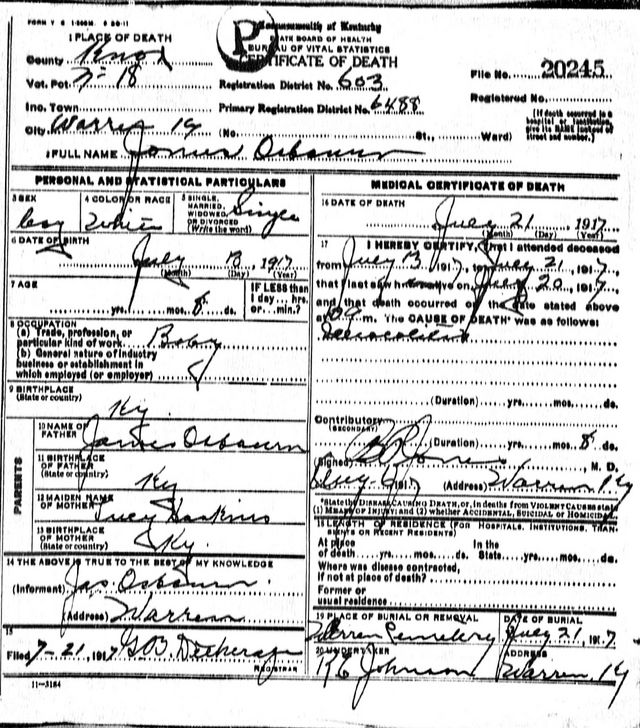 FORM V S 1-500M. 6 20-11
Commonwealth of Kentucky
STATE BOARD OF HEALTH
BUREAU OF VITAL STATISTICS
CERTIFICATE OF DEATH
P
1 PLACE OF DEATH
County Knox
Vot. Pct 7-18 Registration District No. 603
File No. 20245
Inc. Town Primary Registration District No. 6488
Registered No.
City Warren Ky (No. St., Ward)
(If death occurred in a hospital or institution, give its NAME instead of street and number.)
2 FULL NAME James Osbourn
PERSONAL AND STATISTICAL PARTICULARS
3 SEX Boy
4 COLOR OR RACE White
5 SINGLE, MARRIED, WIDOWED OR DIVORCED (Write the word) Single
6 DATE OF BIRTH July 13 1917
(Month) (Day) (Year)
7 AGE yrs. mos. 8 ds.
IF LESS than 1 day... hrs. or... min.?
8 OCCUPATION
(a) Trade, profession, or particular kind of work Baby
(b) General nature of industry business or establishment in which employed (or employer)
9 BIRTHPLACE
(State or country) Ky.
PARENTS
10 NAME OF FATHER James Osbourn
11 BIRTHPLACE OF FATHER
(State or country) Ky
12 MAIDEN NAME OF MOTHER Lucy Haskins
13 BIRTHPLACE OF MOTHER
(State or country) Ky.
14 THE ABOVE IS TRUE TO THE BEST OF MY KNOWLEDGE
(Informant) Jas. Osbourn.
(Address) Warren
15
Filed 7-21, 1917 G.B.
REGISTRAR
11-3184
MEDICAL CERTIFICATE OF DEATH
16 DATE OF DEATH
July 21 1917
(Month) (Day) (Year)
17 I HEREBY CERTIFY, that I attended deceased
from July 13 1917, to July 21, 1917,
that I last saw h alive on July 20, 1917,
and that death occurred on the date stated above
at m. The CAUSE OF DEATH* was as follows:
(Duration) yrs. mos. ds.
Contributory
(SECONDARY)
(Duration) yrs. mos. 8 ds.
(Signed) Jones, M. D.
1917 (Address) Warren Ky
*State the DISEASE CAUSING DEATH, or, in deaths from VIOLENT CAUSES state
(1) MEANS OF INJURY; and (2) whether ACCIDENTAL, SUICIDAL or HOMICIDAL.
18 LENGTH OF RESIDENCE (FOR HOSPITALS, INSTITUTIONS, TRANSIENTS OR RECENT RESIDENTS)
At place of death yrs. mos. ds. In the State yrs. mos. ds.
Where was disease contracted,
If not at place of death?
Former or
usual residence
19 PLACE OF BURIAL OR REMOVAL Warren Cemetery
DATE OF BURIAL July 21, 1917
20 UNDERTAKER Johnson
ADDRESS Warren, Ky